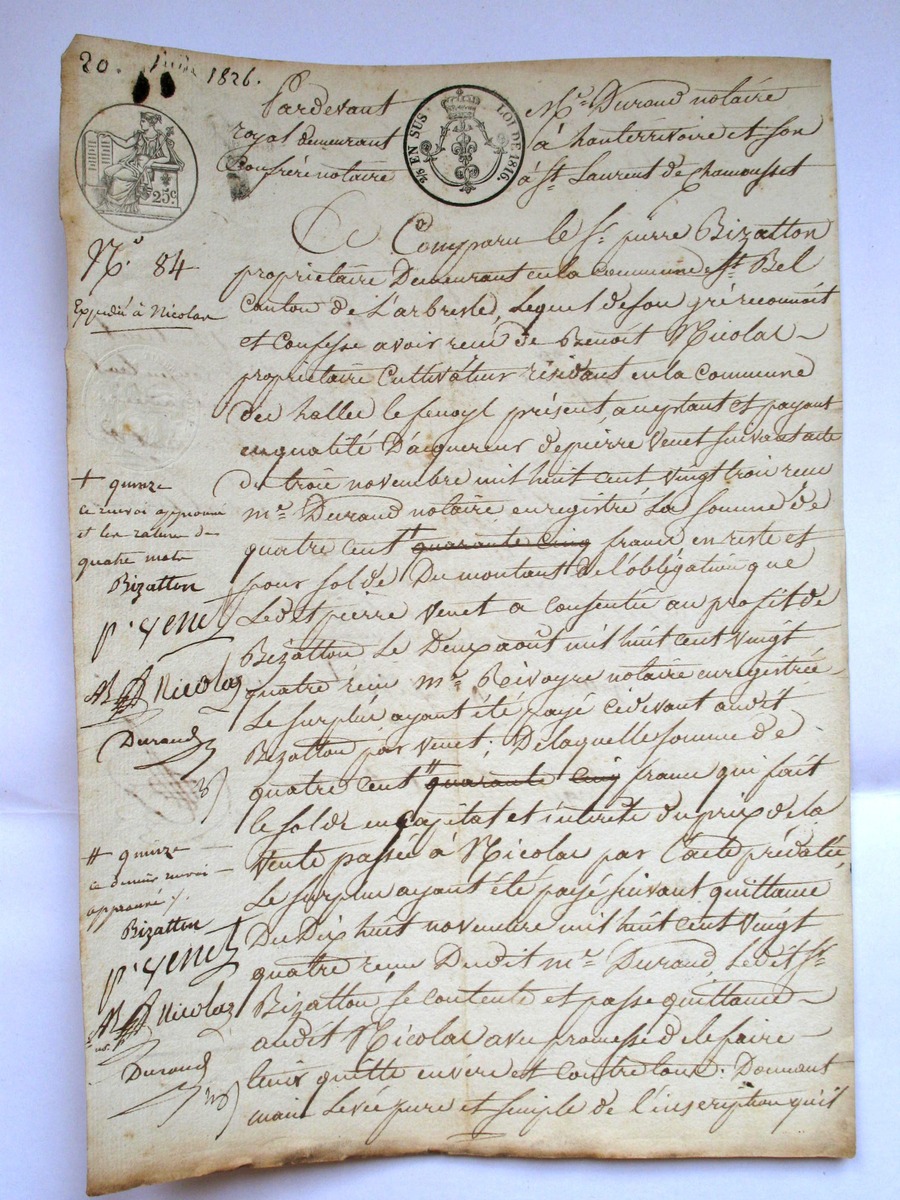 20. 1826.
Pardevant Me. Durand notaire
royal demeurant à hauterrivoire et son
Confrère notaire à St. Laurent de chamousset
2/5 EN SUS LOI DE 1816.
25c
N.o 84
Expédié à Nicolas
A Comparu le Sr. pierre Bizatton
propriétaire Demeurant en la commune de St. Bel
Canton de L'arbresle, Lequel de son gré reconnoit
et Confesse avoir reçu de Benoit Nicolas
propriétaire Cultivateur résidant en la commune
des halles le fenoyl présent, acceptant et payant
en qualité D'acquereur de pierre Venet suivant acte
du trois novembre mil huit cent Vingt trois reçu
me. Durand notaire enregistré La somme de
quatre cent # quarante cinq francs en reste et
pour solde Du montant de l'obligation que
Ledit pierre Venet a consentie au profit de
Bizatton Le Deux août mil huit cent Vingt
quatre reçue me. notaire enregistrée
Le surplus ayant été payé cidevant audit
Bizatton par Venet; De laquelle somme de
quatre cent # quarante cinq francs qui fait
le solde en capital et intérêts du prix de la
Vente passée à Nicolas par l'acte prédaté,
Le surplus ayant été payé suivant quittance
Du Dix huit novembre mil huit cent Vingt
quatre reçue Dudit me. Durand, Ledit Sr.
Bizatton se contente et passe quittance
audit Nicolas avec promesse de le faire
tenir quitte envers et contre tous: Donnant
main Levée pure et simple de l'inscription qu'il
+ quinze
ce renvoi approuvé
et les rature de
quatre mots
Bizatton
p. venet
Nicolas
Durand
# quinze
ce dernier renvoi
approuvé /.
Bizatton
p. venet
Nicolas
Durand